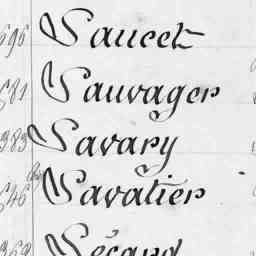 696 Saucet
581 Sauvager
983 Savary
546 Savatier
369 Sécard